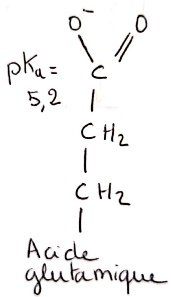 O⁻ O
pKa = C
5,2
CH₂
CH₂
Acide
glutamique